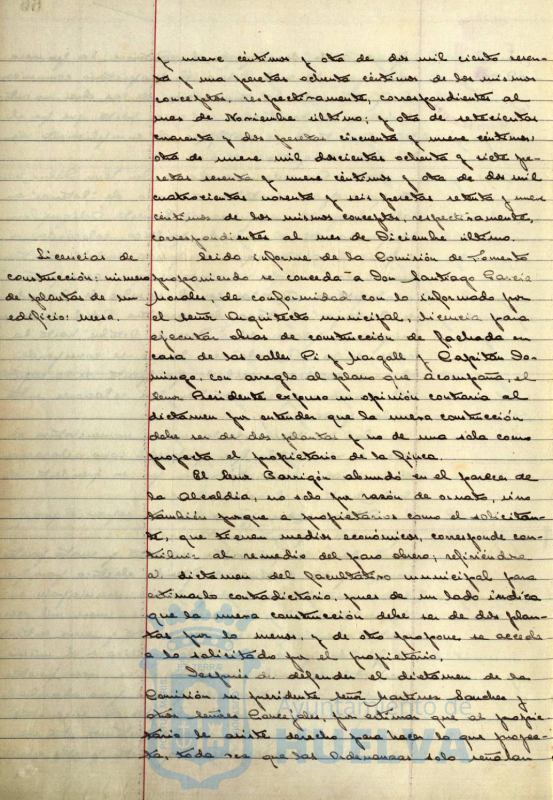 y nueve céntimos y otra de dos mil ciento sesen-
ta y una pesetas ochenta céntimos de los mismos
conceptos, respectivamente, correspondientes al
mes de Noviembre último; y otra de setecientas
cuarenta y dos pesetas cincuenta y nueve céntimos,
otra de nueve mil doscientas ochenta y siete pe-
setas sesenta y nueve céntimos y otra de dos mil
cuatrocientas noventa y seis pesetas setenta y nueve
céntimos de los mismos conceptos, respectivamente,
correspondientes al mes de Diciembre último.
Licencias de
construcción: número
de plantas de un
edificio: mesa.
Leido informe de la Comisión de Fomento
proponiendo se conceda a Don Santiago García
Morales, de conformidad con lo informado por
el señor Arquitecto municipal, licencia para
ejecutar obras de construcción de fachada en
casa de las calles Pi y Margall y Capitán Do-
mingo, con arreglo al plano que acompaña, el
señor Presidente expuso su opinión contraria al
dictamen por entender que la nueva construcción
debe ser de dos plantas y no de una sola como
proyecta el propietario de la finca.
El señor Barrigón abundó en el parecer de
la Alcaldía, no solo por razón de ornato, sino
también porque a propietarios como el solicitan-
te, que tienen medios económicos, corresponde con-
tribuir al remedio del paro obrero; refiriéndose
al dictamen del facultativo municipal para
estimarlo contradictorio, pues de un lado indica
que la nueva construcción debe ser de dos plan-
tas por lo menos, y de otro propone se acceda
a lo solicitado por el propietario.
Después de defender el dictamen de la
Comisión su presidente señor Martinez Sanchez y
otros señores Concejales, por estimar que al propie-
tario le asiste derecho para hacer lo que proyec-
ta, toda vez que las Ordenanzas solo señalan
Ayuntamiento de
HUELVA